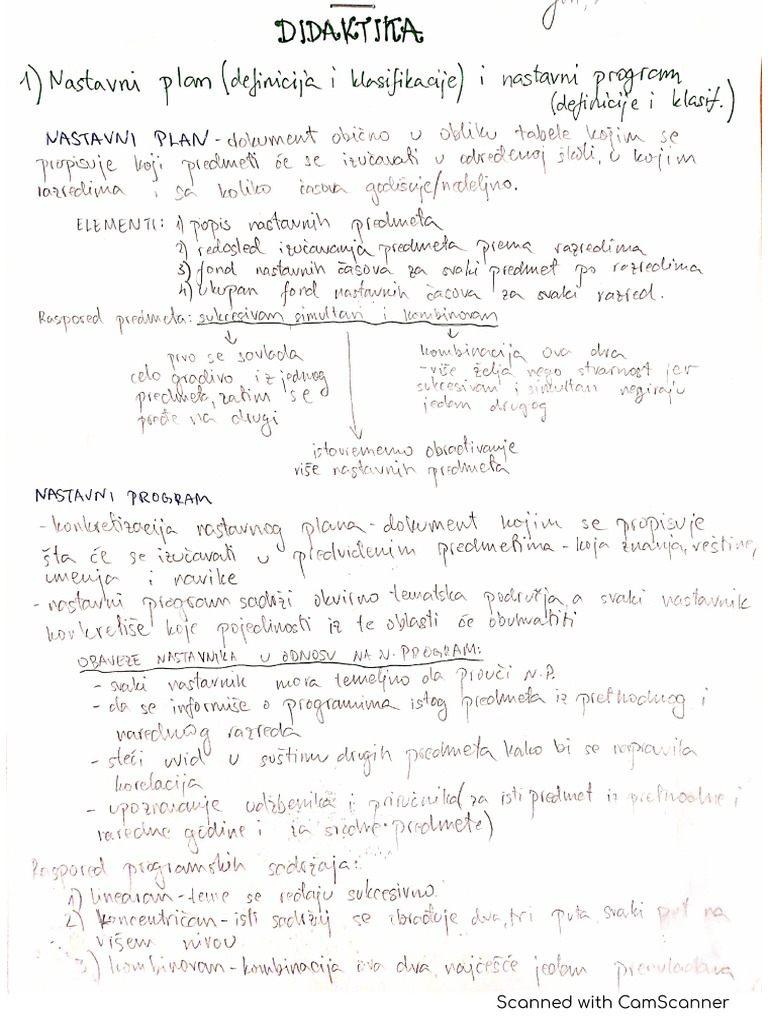 DIDAKTIKA
1) Nastavni plan (definicija i klasifikacije) i nastavni program
(definicije i klasif.)
NASTAVNI PLAN - dokument obično u obliku tabele kojim se
propisuje koji predmeti će se izučavati u određenoj školi, u kojim
razredima i sa koliko časova godišnje/nedeljno.
ELEMENTI: 1) popis nastavnih predmeta
2) redosled izučavanja predmeta prema razredima
3) fond nastavnih časova za svaki predmet po razredima
4) ukupan fond nastavnih časova za svaki razred.
Raspored predmeta: sukcesivan, simultani i kombinovan
prvo se savlada
celo gradivo iz jednog
predmeta, zatim se
pređe na drugi
kombinacija ova dva
- više želja nego stvarnost jer
sukcesivan i simultan negiraju
jedan drugog
istovremeno obrađivanje
više nastavnih predmeta
NASTAVNI PROGRAM
- konkretizacija nastavnog plana - dokument kojim se propisuje
šta će se izučavati u predviđenim predmetima - koja znanja, veštine,
umenja i navike
- nastavni program sadrži okvirno tematska područja, a svaki nastavnik
konkretiše koje pojedinosti iz te oblasti će obuhvatiti
OBAVEZE NASTAVNIKA U ODNOSU NA N. PROGRAM:
- svaki nastavnik mora temeljno da prouči N.P.
- da se informiše o programima istog predmeta iz prethodnog i
narednog razreda
- steći uvid u suštinu drugih predmeta kako bi se napravila
korelacija
- upoznavanje udžbenika i priručnika (za isti predmet iz prethodne i
naredne godine i za srodne predmete)
Raspored programskih sadržaja:
1) linearan - teme se ređaju sukcesivno
2) koncentričan - isti sadržaj se obrađuje dva, tri puta, svaki put na
višem nivou
3) kombinovan - kombinacija ova dva, najčešće jedan preovladava
Scanned with CamScanner